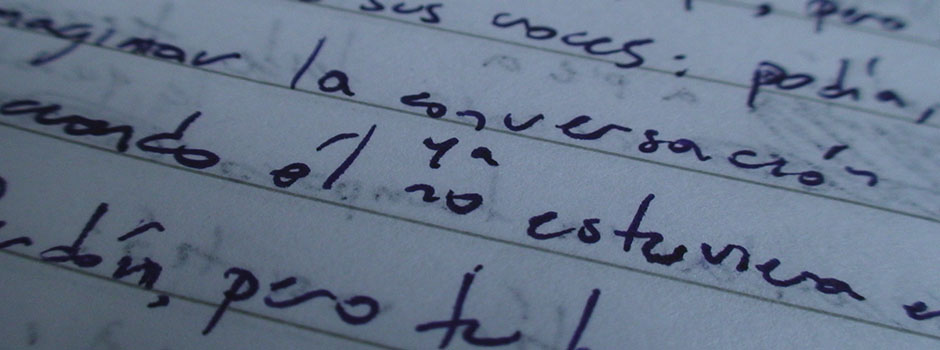 sus voces: podía, pero
imaginar la conversación
cuando él ya no estuviera
pero tu